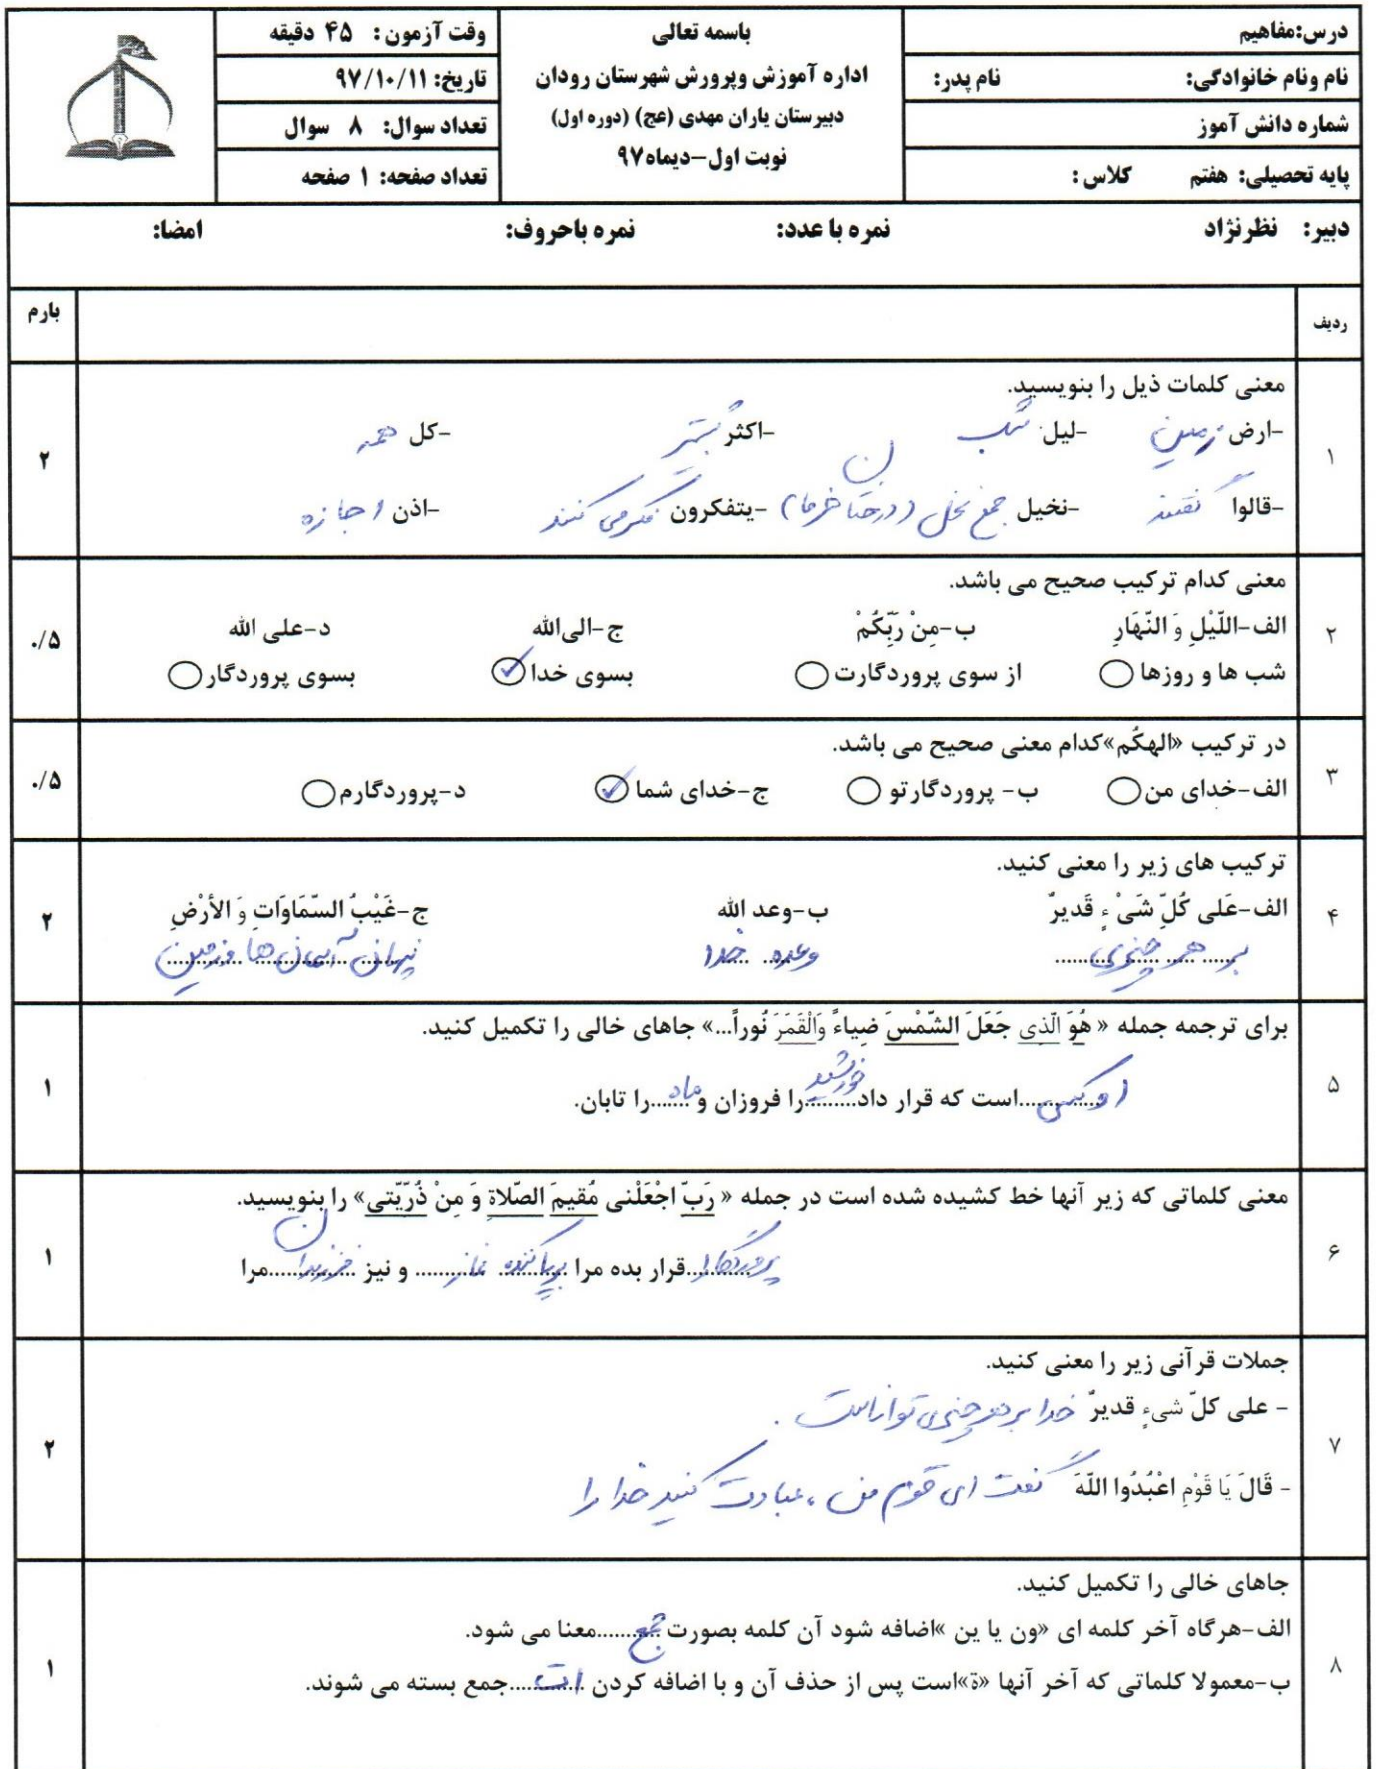 درس:مفاهیم
نام ونام خانوادگی: نام پدر:
شماره دانش آموز
پایه تحصیلی: هفتم کلاس :
باسمه تعالی
اداره آموزش وپرورش شهرستان رودان
دبیرستان یاران مهدی (عج) (دوره اول)
نوبت اول-دیماه۹۷
وقت آزمون : ۴۵ دقیقه
تاریخ: ۹۷/۱۰/۱۱
تعداد سوال: ۸ سوال
تعداد صفحه: ۱ صفحه
دبیر: نظرنژاد نمره با عدد: نمره باحروف: امضا:
ردیف بارم
۱ معنی کلمات ذیل را بنویسید. ۲
-ارض زمین -لیل شب -اکثر بیشتر -کل همه
-قالوا گفتند -نخیل جمع نخل (درختان خرما) -یتفکرون فکر می کنند -اذن اجازه
۲ معنی کدام ترکیب صحیح می باشد. ۰/۵
الف-اللّیْلِ وَ النّهَارِ ب-مِنْ رَبِّکُمْ ج-الی‌الله د-علی الله
شب ها و روزها از سوی پروردگارت بسوی خدا ✓ بسوی پروردگار
۳ در ترکیب «الهکُم»کدام معنی صحیح می باشد. ۰/۵
الف-خدای من ب- پروردگارتو ج-خدای شما ✓ د-پروردگارم
۴ ترکیب های زیر را معنی کنید. ۲
الف-عَلی کُلِّ شَیْ ءٍ قَدیرٌ ب-وعد الله ج-غَیْبُ السّمَاوَاتِ وَ الأرْضِ
بر هر چیزی وعده خدا پنهان آسمان ها و زمین
۵ برای ترجمه جمله « هُوَ الّذِی جَعَلَ الشّمْسَ ضِیاءً وَالْقَمَرَ نُوراً...» جاهای خالی را تکمیل کنید. ۱
او کسی است که قرار داد خورشید را فروزان و ماه را تابان.
۶ معنی کلماتی که زیر آنها خط کشیده شده است در جمله « رَبّ اجْعَلْنی مُقیمَ الصّلاةِ وَ مِنْ ذُرّیّتی» را بنویسید. ۱
پروردگارا قرار بده مرا برپا کننده نماز و نیز فرزندان مرا
۷ جملات قرآنی زیر را معنی کنید. ۲
- علی کلّ شیءٍ قدیرٌ خدا بر هر چیزی توانا است .
- قَالَ یَا قَوْمِ اعْبُدُوا اللّهَ گفت ای قوم من ، عبادت کنید خدا را
۸ جاهای خالی را تکمیل کنید. ۱
الف-هرگاه آخر کلمه ای «ون یا ین »اضافه شود آن کلمه بصورت جمع معنا می شود.
ب-معمولا کلماتی که آخر آنها «ة»است پس از حذف آن و با اضافه کردن ات جمع بسته می شوند.